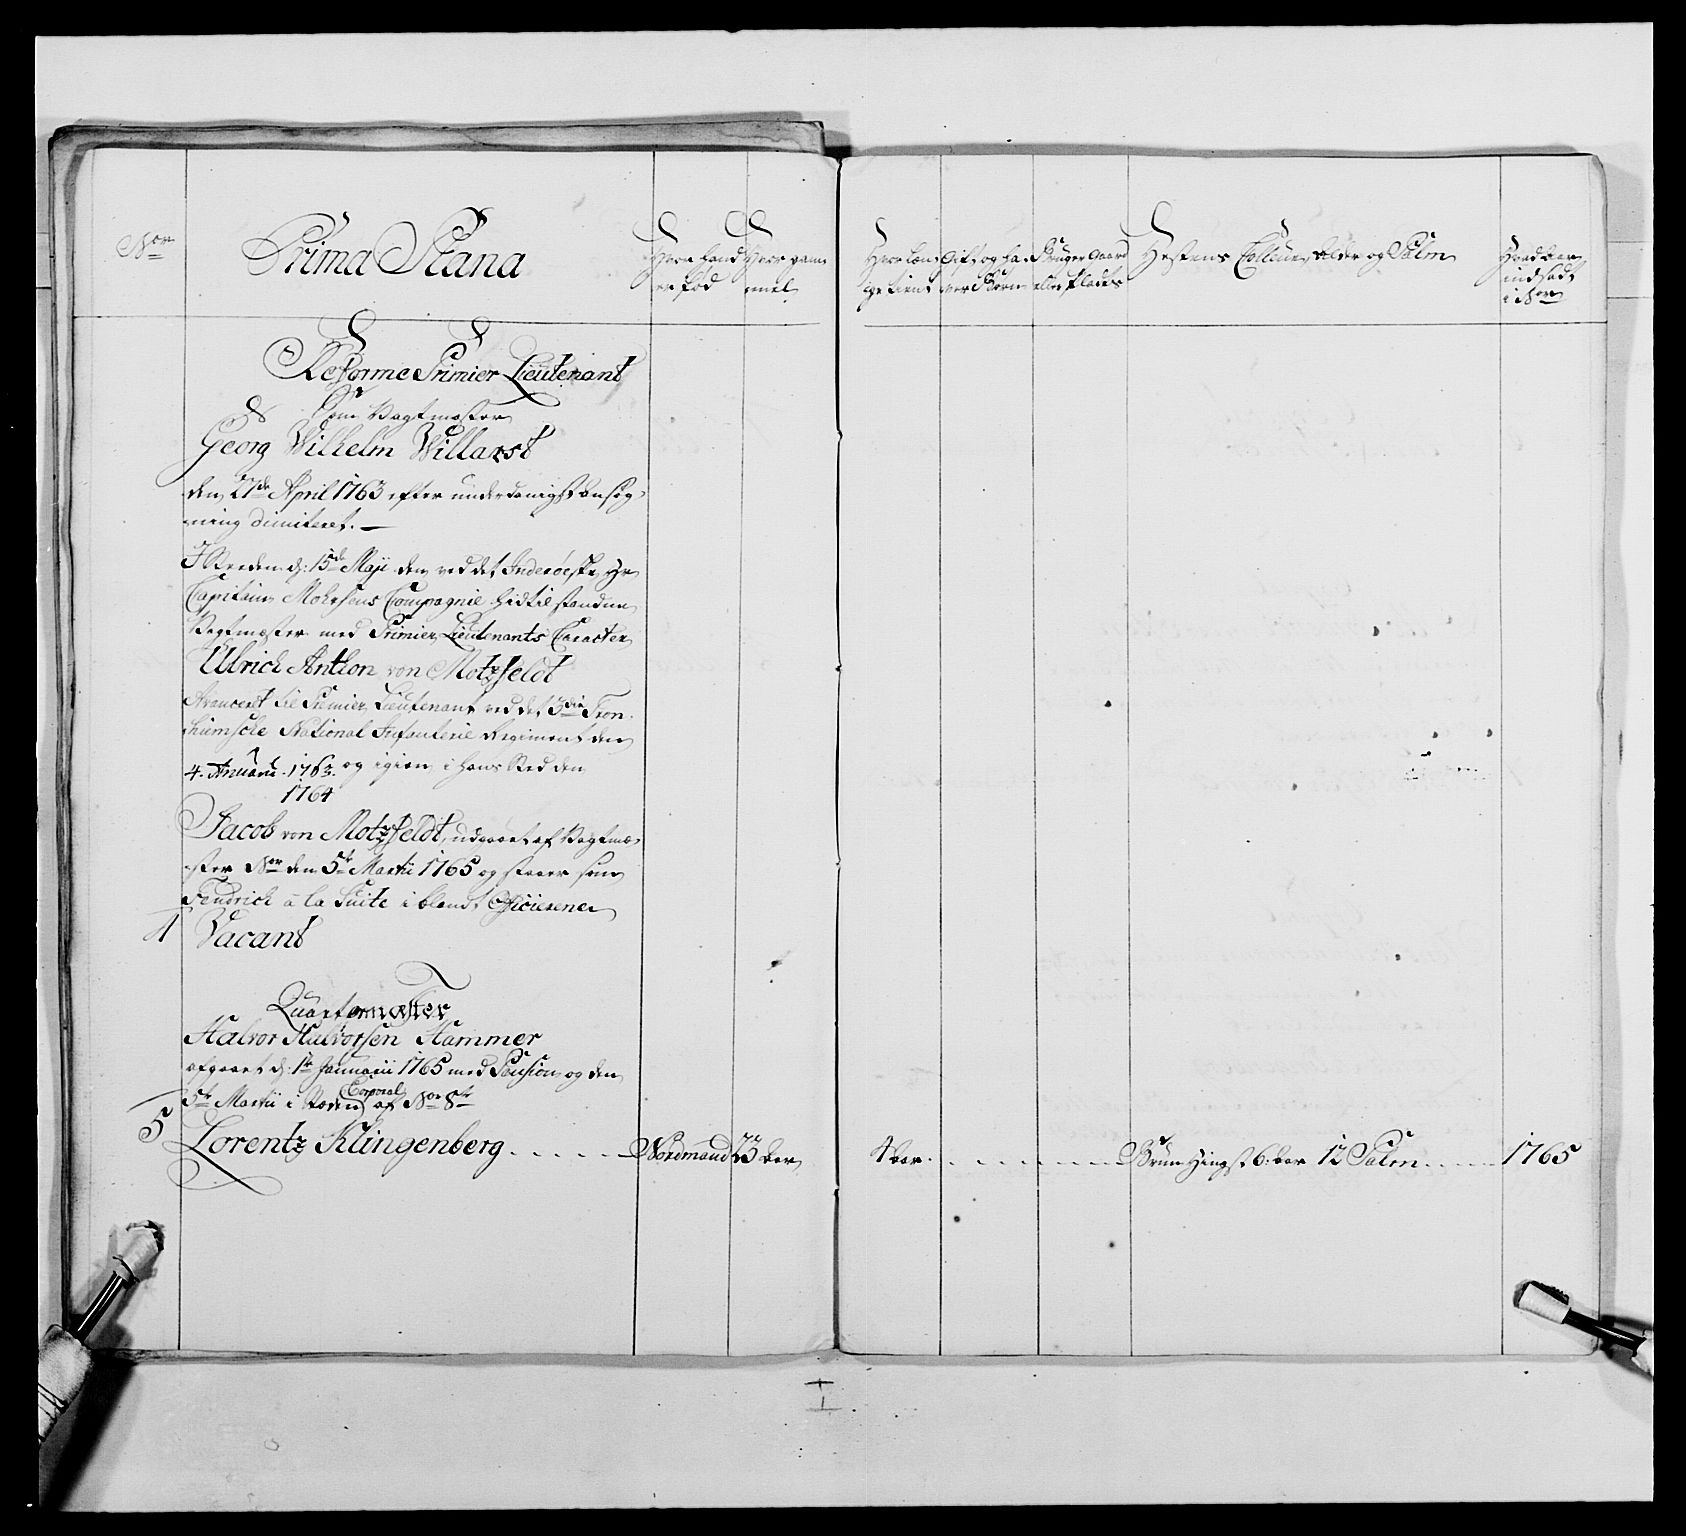 No.
Prima Plana
Hvor Land er fød
Hvor gammel
Hvor længe tient
Gift og haver Børn
Bruger Gaard eller Plads
Hestens Colleur, Alder og Palm
Hvad Aar indsadt i No.
Reforme Primier Lieutenant
Som Vagtmester
Georg Wilhelm Willarst
den 27de April 1763 efter underdanigst Ansøg-
ning dimiteret.
I Steden d: 15de Maji den ved det Inderøeske Hr
Capitain Mohrsens Compagnie hidtil standne
Vagtmester med Primier Lieutenants Caracter
Ulrich Anthon von Motzfeldt
Avanceret til Premier Lieutenant ved det 3die Tron-
hiemsche National Infanterie Regiment den
4. Anuarii 1763. og igien i hans Sted den
1764
Jacob von Motzfeldt, udgaaet af Vagtme-
ster Nor den 5te Martii 1765 og staaer som
Fendrich a la Suite i blandt Officierene
4 Vacant
Quartermæster
Halvor Halvorsen Hammer
afgaaet d: 1te Januarii 1765 med Pension og den
5te Martii i Steden Corporal af No 8te
5 Lorentz Klingenberg . . . . . Nordmand 23 Aar 4 Aar . . . . . Bruun Hingst 6: Aar 12 Palm . . . . 1765